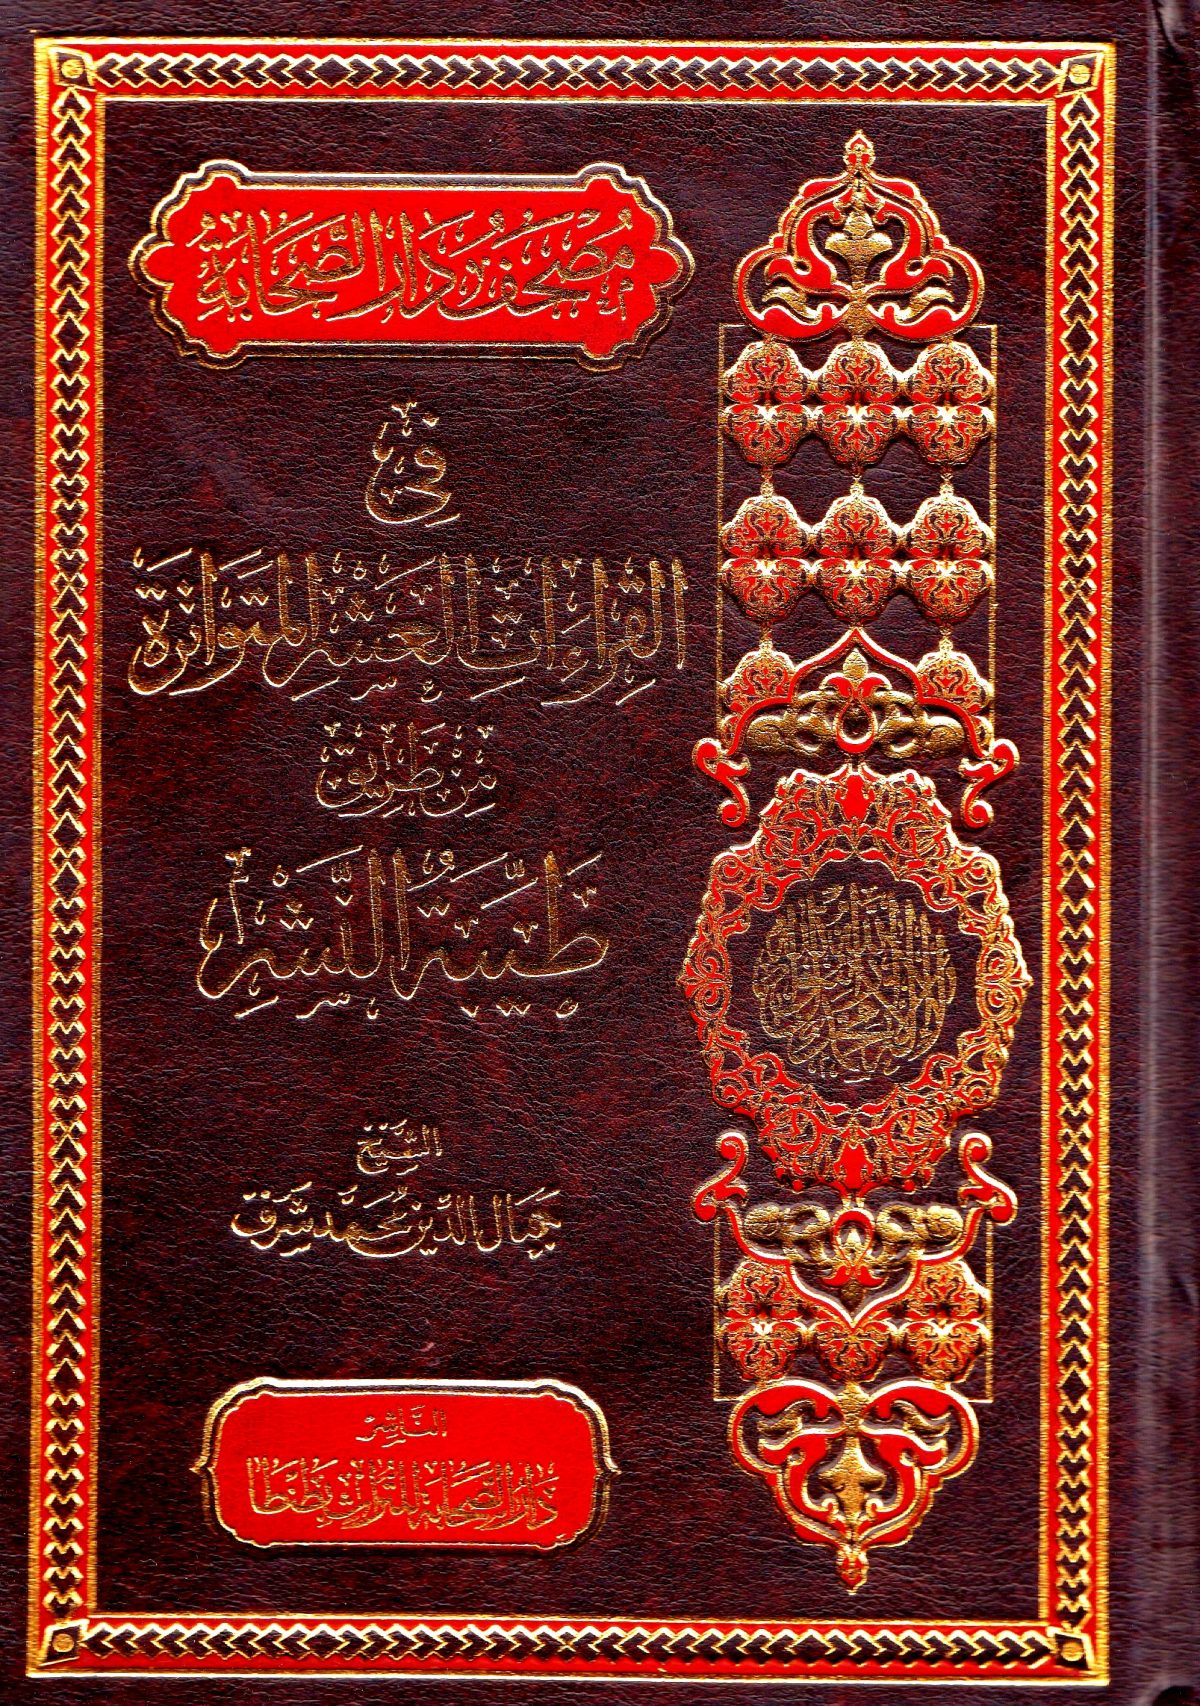 مُصْحَفُ دَارِ الصَّحَابَةِ
فِي
القِرَاءَاتِ العَشْرِ المُتَوَاتِرَةِ
مِنْ طَرِيقِ
طَيِّبَةِ النَّشْرِ
الشَّيْخ
جَمَالُ الدِّين مُحَمَّد شَرَف
النَّاشِرُ
دَارُ الصَّحَابَةِ لِلتُّرَاثِ بِطَنْطَا